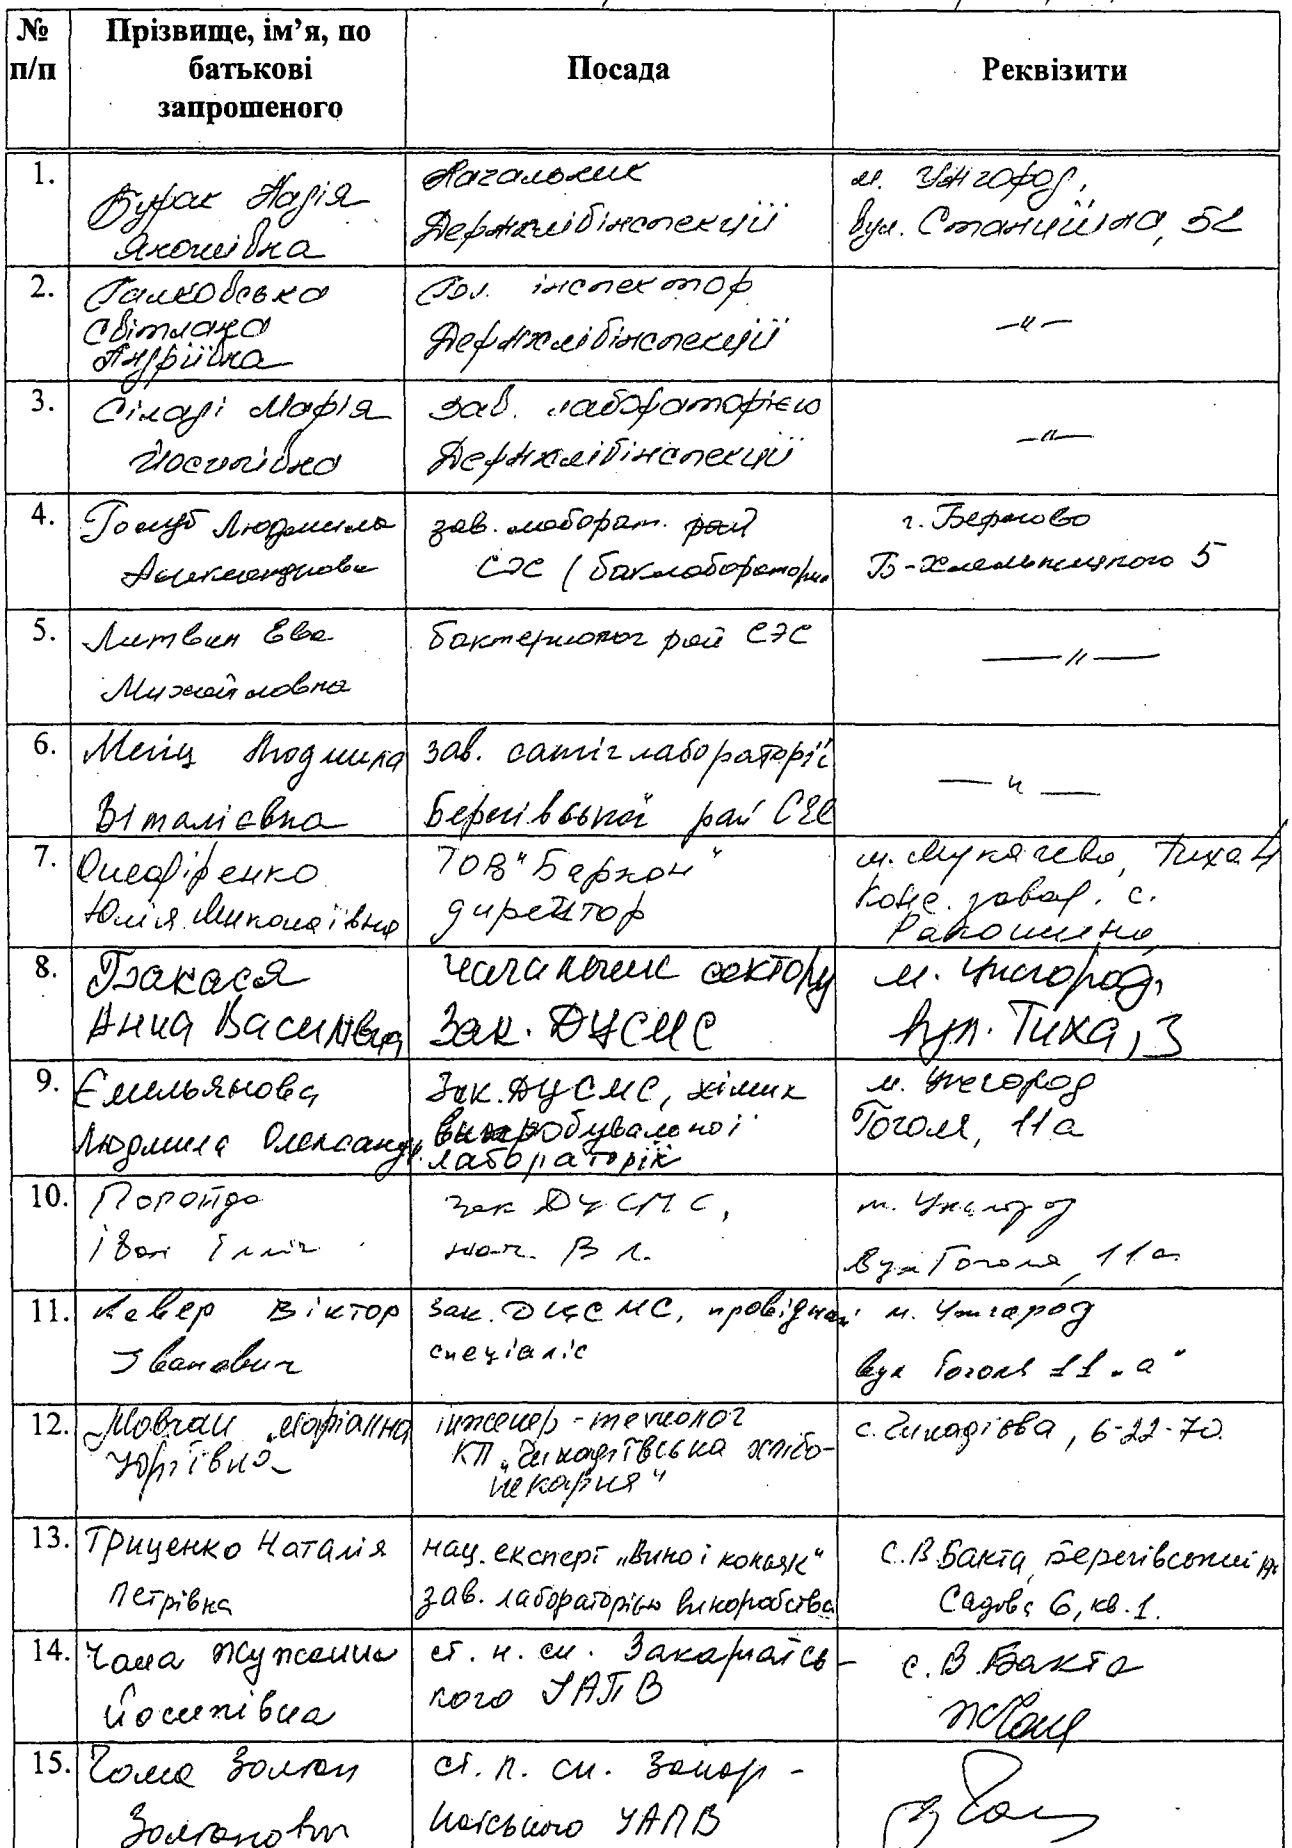 № п/п
Прізвище, ім’я, по
батькові
запрошеного
Посада
Реквізити
1.
Бурак Надія
Яношівна
Начальник
Держхлібінспекції
м. Ужгород,
вул. Станційна, 52
2.
Галковська
Світлана
Андріївна
Гол. інспектор
Держхлібінспекції
—"—
3.
Сіладі Марія
Йосипівна
Зав. лабораторією
Держхлібінспекції
—"—
4.
Голуб Людмила
Александровна
зав. лаборат. рай
СЭС (баклаборатория
г. Берегово
Б-Хмельницкого 5
5.
Литвин Ева
Михайловна
бактериолог рай СЭС
—"—
6.
Людмила
Віталієвна
зав. сангіглабораторії
Берегівської рай СЕС
—"—
7.
Юлія Миколаївна
ТОВ "Беркон"
директор
м. Мукачево, Тиха 4
Конс. завод. с.
Ракошино
8.
Анна Василівна
начальник сектору
Зак. ДЦСМС
м. Ужгород,
вул. Тиха, 3
9.
Ємельянова
Людмила Олександр.
Зак. ДЦСМС, хімик
випробувальної
лабораторії
м. Ужгород
Гоголя, 11а
10.
Іван Ілліч
Зак ДЦСМС,
нач. ВЛ.
м. Ужгород
вул Гоголя, 11а
11.
Кевер Віктор
Іванович
Зак. ДЦСМС, провідний
спеціаліс
м. Ужгород
вул Гоголя 11 „а"
12.
Мовчан Маріанна
Юріївна
інженер-технолог
КП „Чинадіївська хлібо-
пекарня"
с. Чинадієва, 6-22-70.
13.
Гриценко Наталія
Петрівна
нац. експерт „Вино і коньяк"
зав. лабораторією виноробства
с. В. Бакта, Берегівський
Садова 6, кв. 1.
14.
Чома Жужанна
Йосипівна
ст. н. сп. Закарпатсь-
кого УАПВ
с. В. Бакта
15.
Чома Золтан
Золтанович
ст. н. сп. Закар-
патського УАПВ